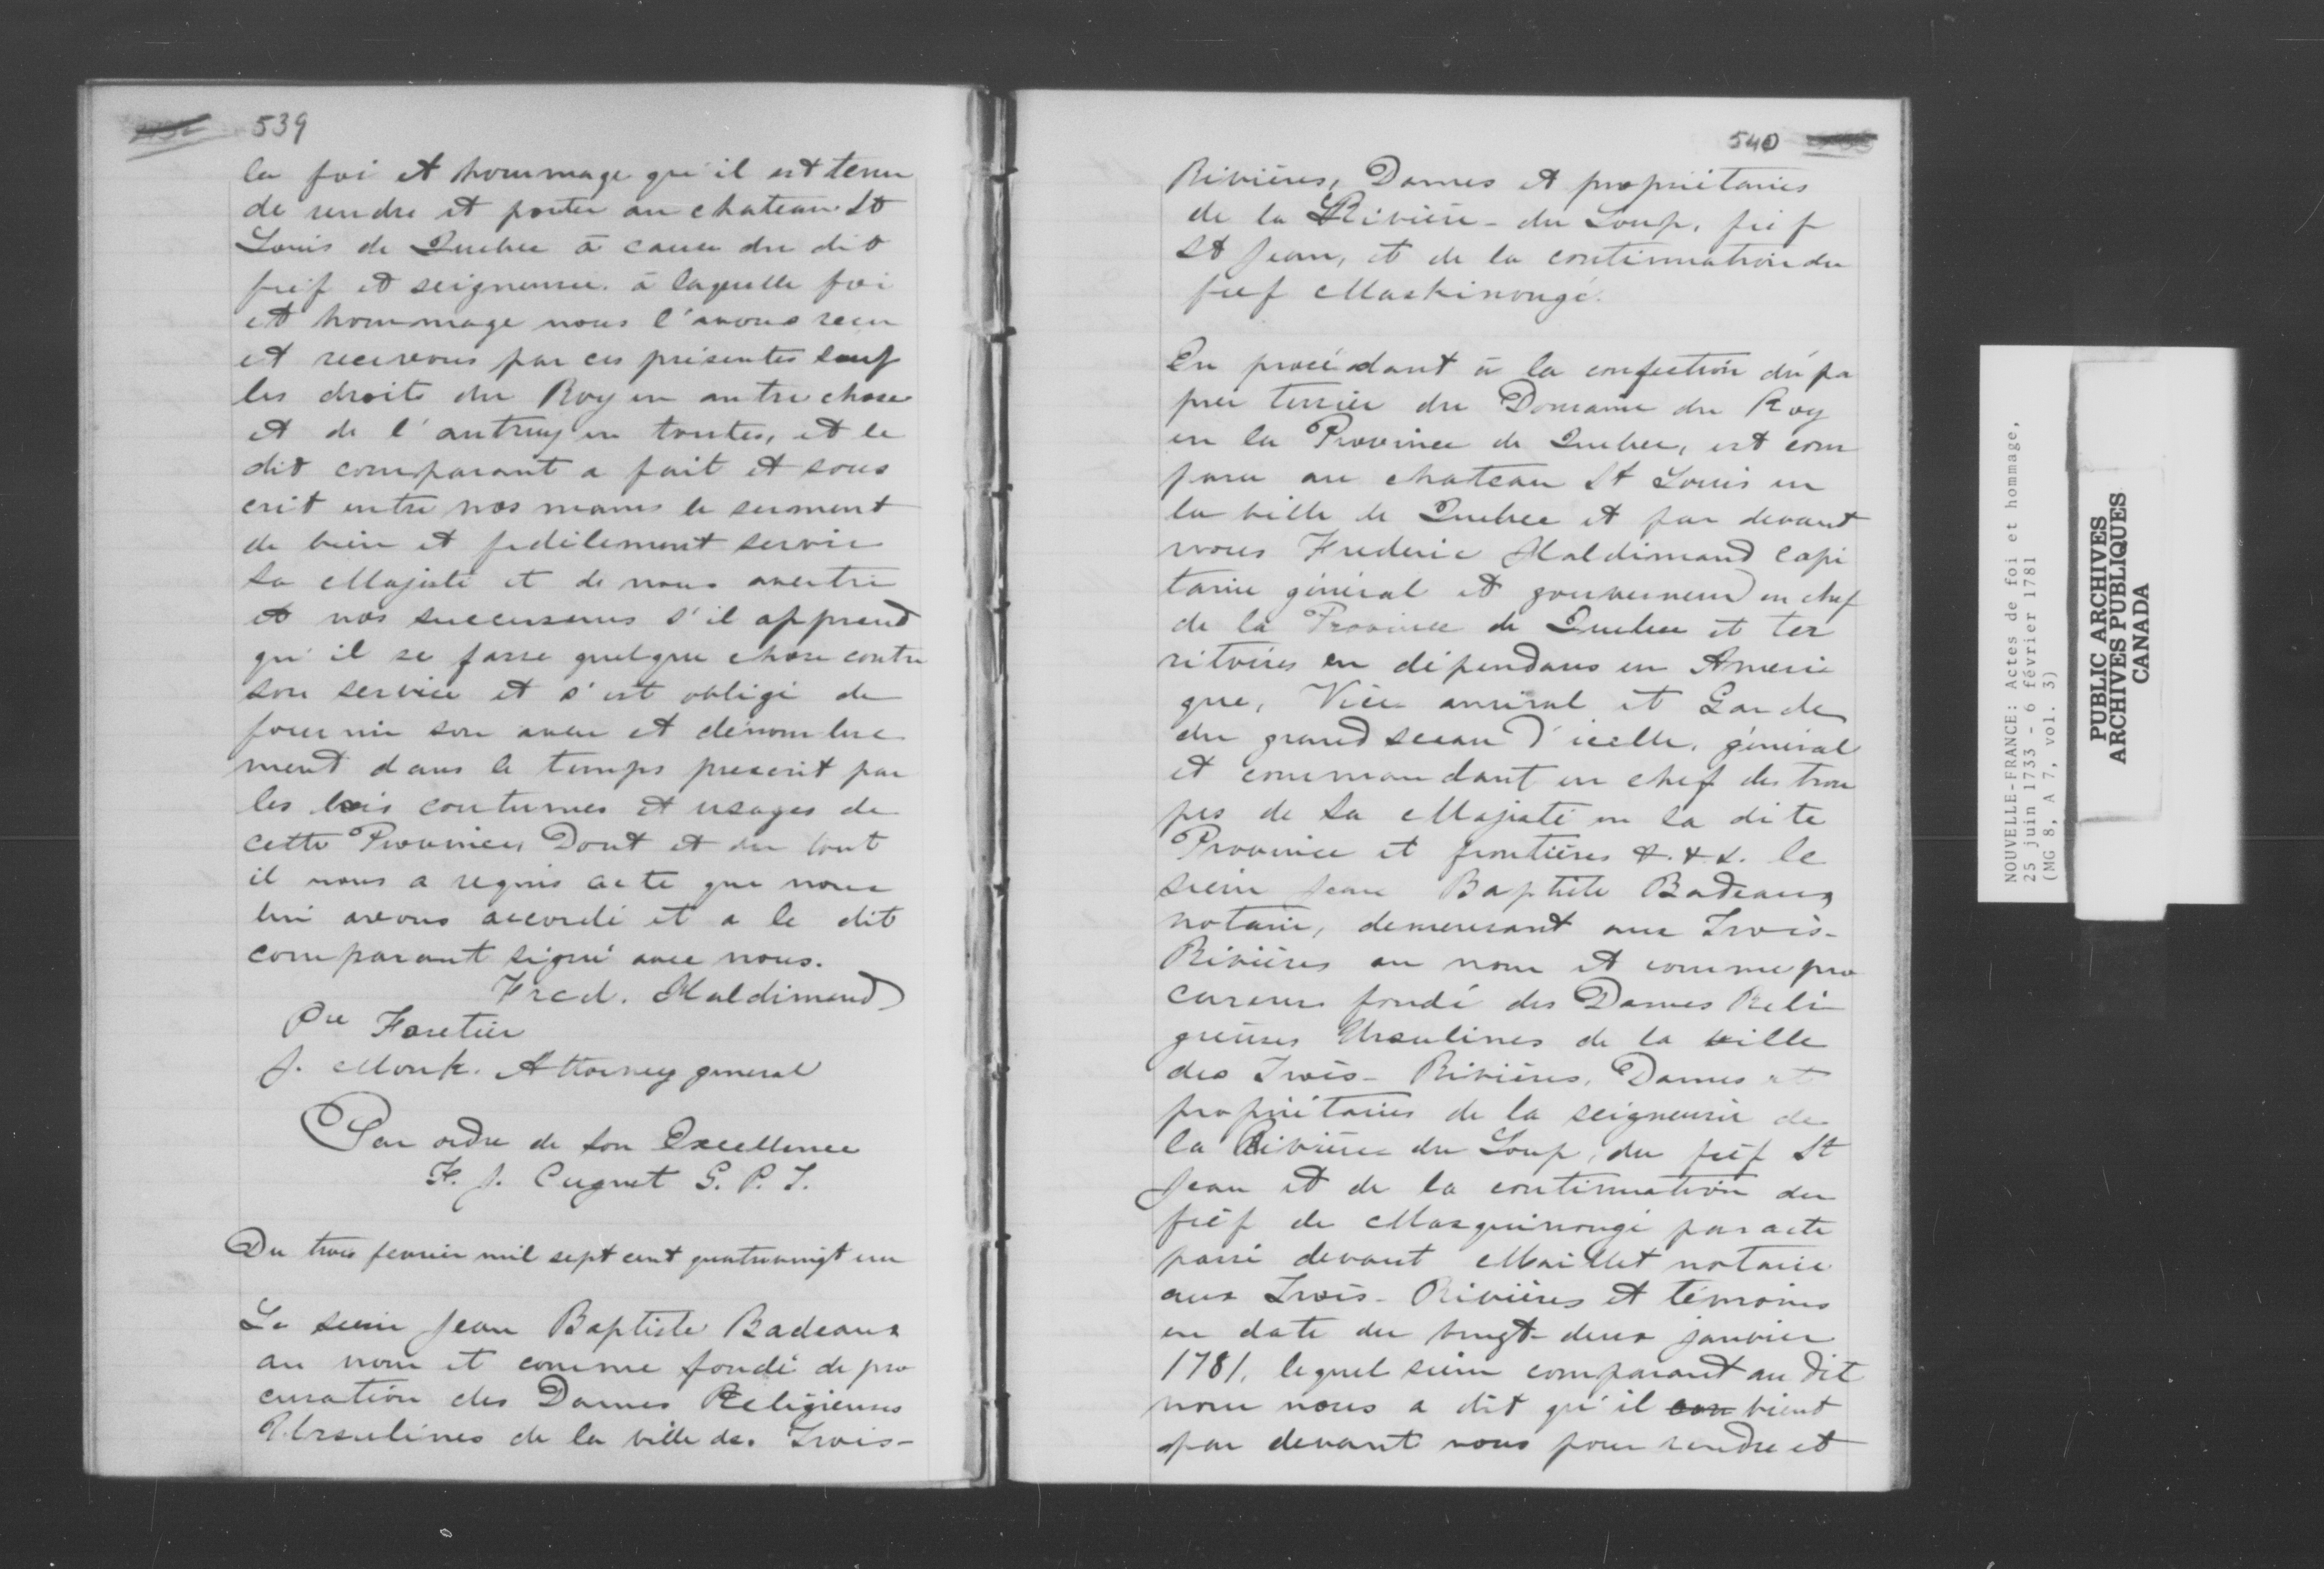 539
la foi et hommage qu'il est tenu
de rendre et porter au chateau St
Louis de Quebec à cause du dit
fief et seigneurie. à laquelle foi
et hommage nous l'avons reçu
et recevons par ces présentes sauf
les droits du Roy en autre chose
et de l'autruy en toutes, et le
dit comparant a fait et sous
crit entre nos mains le serment
de bien et fidèlement servir
Sa Majesté et de nous avertir
et nos successeurs s'il apprend
qu'il se fasse quelque chose contre
son service et s'est obligé de
fournir son aveu et dénombre
ment dans le temps prescrit par
les lois coutumes et usages de
cette Province, Dont et du tout
il nous a requis acte que nous
lui avons accordé et a le dit
comparant signé avec nous.
Fred. Haldimand
Pre Foretier
J. Monk. Attorney general
Par ordre de Son Excellence
F. J. Cugnet G. P. T.
Du trois fevrier mil sept cent quatrevingt un
Le sieur Jean Baptiste Badeaux
au nom et comme fondé de pro
curation des Dames Religieuses
Ursulines de la ville des Trois-
540
Rivières, Dames et propriétaires
de la Rivière-du Loup, fief
St Jean, et de la continuation du
fief Maskinongé.
En procédant à la confection du pa
pier terrier du Domaine du Roy
en la Province de Quebec, est com
paru au chateau St Louis en
la ville de Quebec et par devant
nous Frederic Haldimand capi
taine général et gouverneur en chef
de la Province de Quebec et ter
ritoires en dépendans en Ameri
que, Vice amiral et Garde
du grand sceau d'icelle, général
et commandant en chef des trou
pes de Sa Majesté en la dite
Province et frontières &. &. &. le
sieur Jean Baptiste Badeaux
notaire, demeurant aux Trois-
Rivières au nom et comme pro
cureur fondé des Dames Reli
gieuses Ursulines de la ville
des Trois-Rivières, Dames et
propriétaires de la seigneurie de
la Rivière du Loup, du fief St
Jean et de la continuation du
fief de Masquinongé par acte
passé devant Maillet notaire
aux Trois-Rivières et témoins
en date du vingt-deux janvier
1781, lequel sieur comparant au dit
nom nous a dit qu'il con vient
par devant nous pour rendre et
NOUVELLE-FRANCE: Actes de foi et hommage,
25 juin 1733 - 6 février 1781
(MG 8, A 7, vol. 3)
PUBLIC ARCHIVES
ARCHIVES PUBLIQUES
CANADA